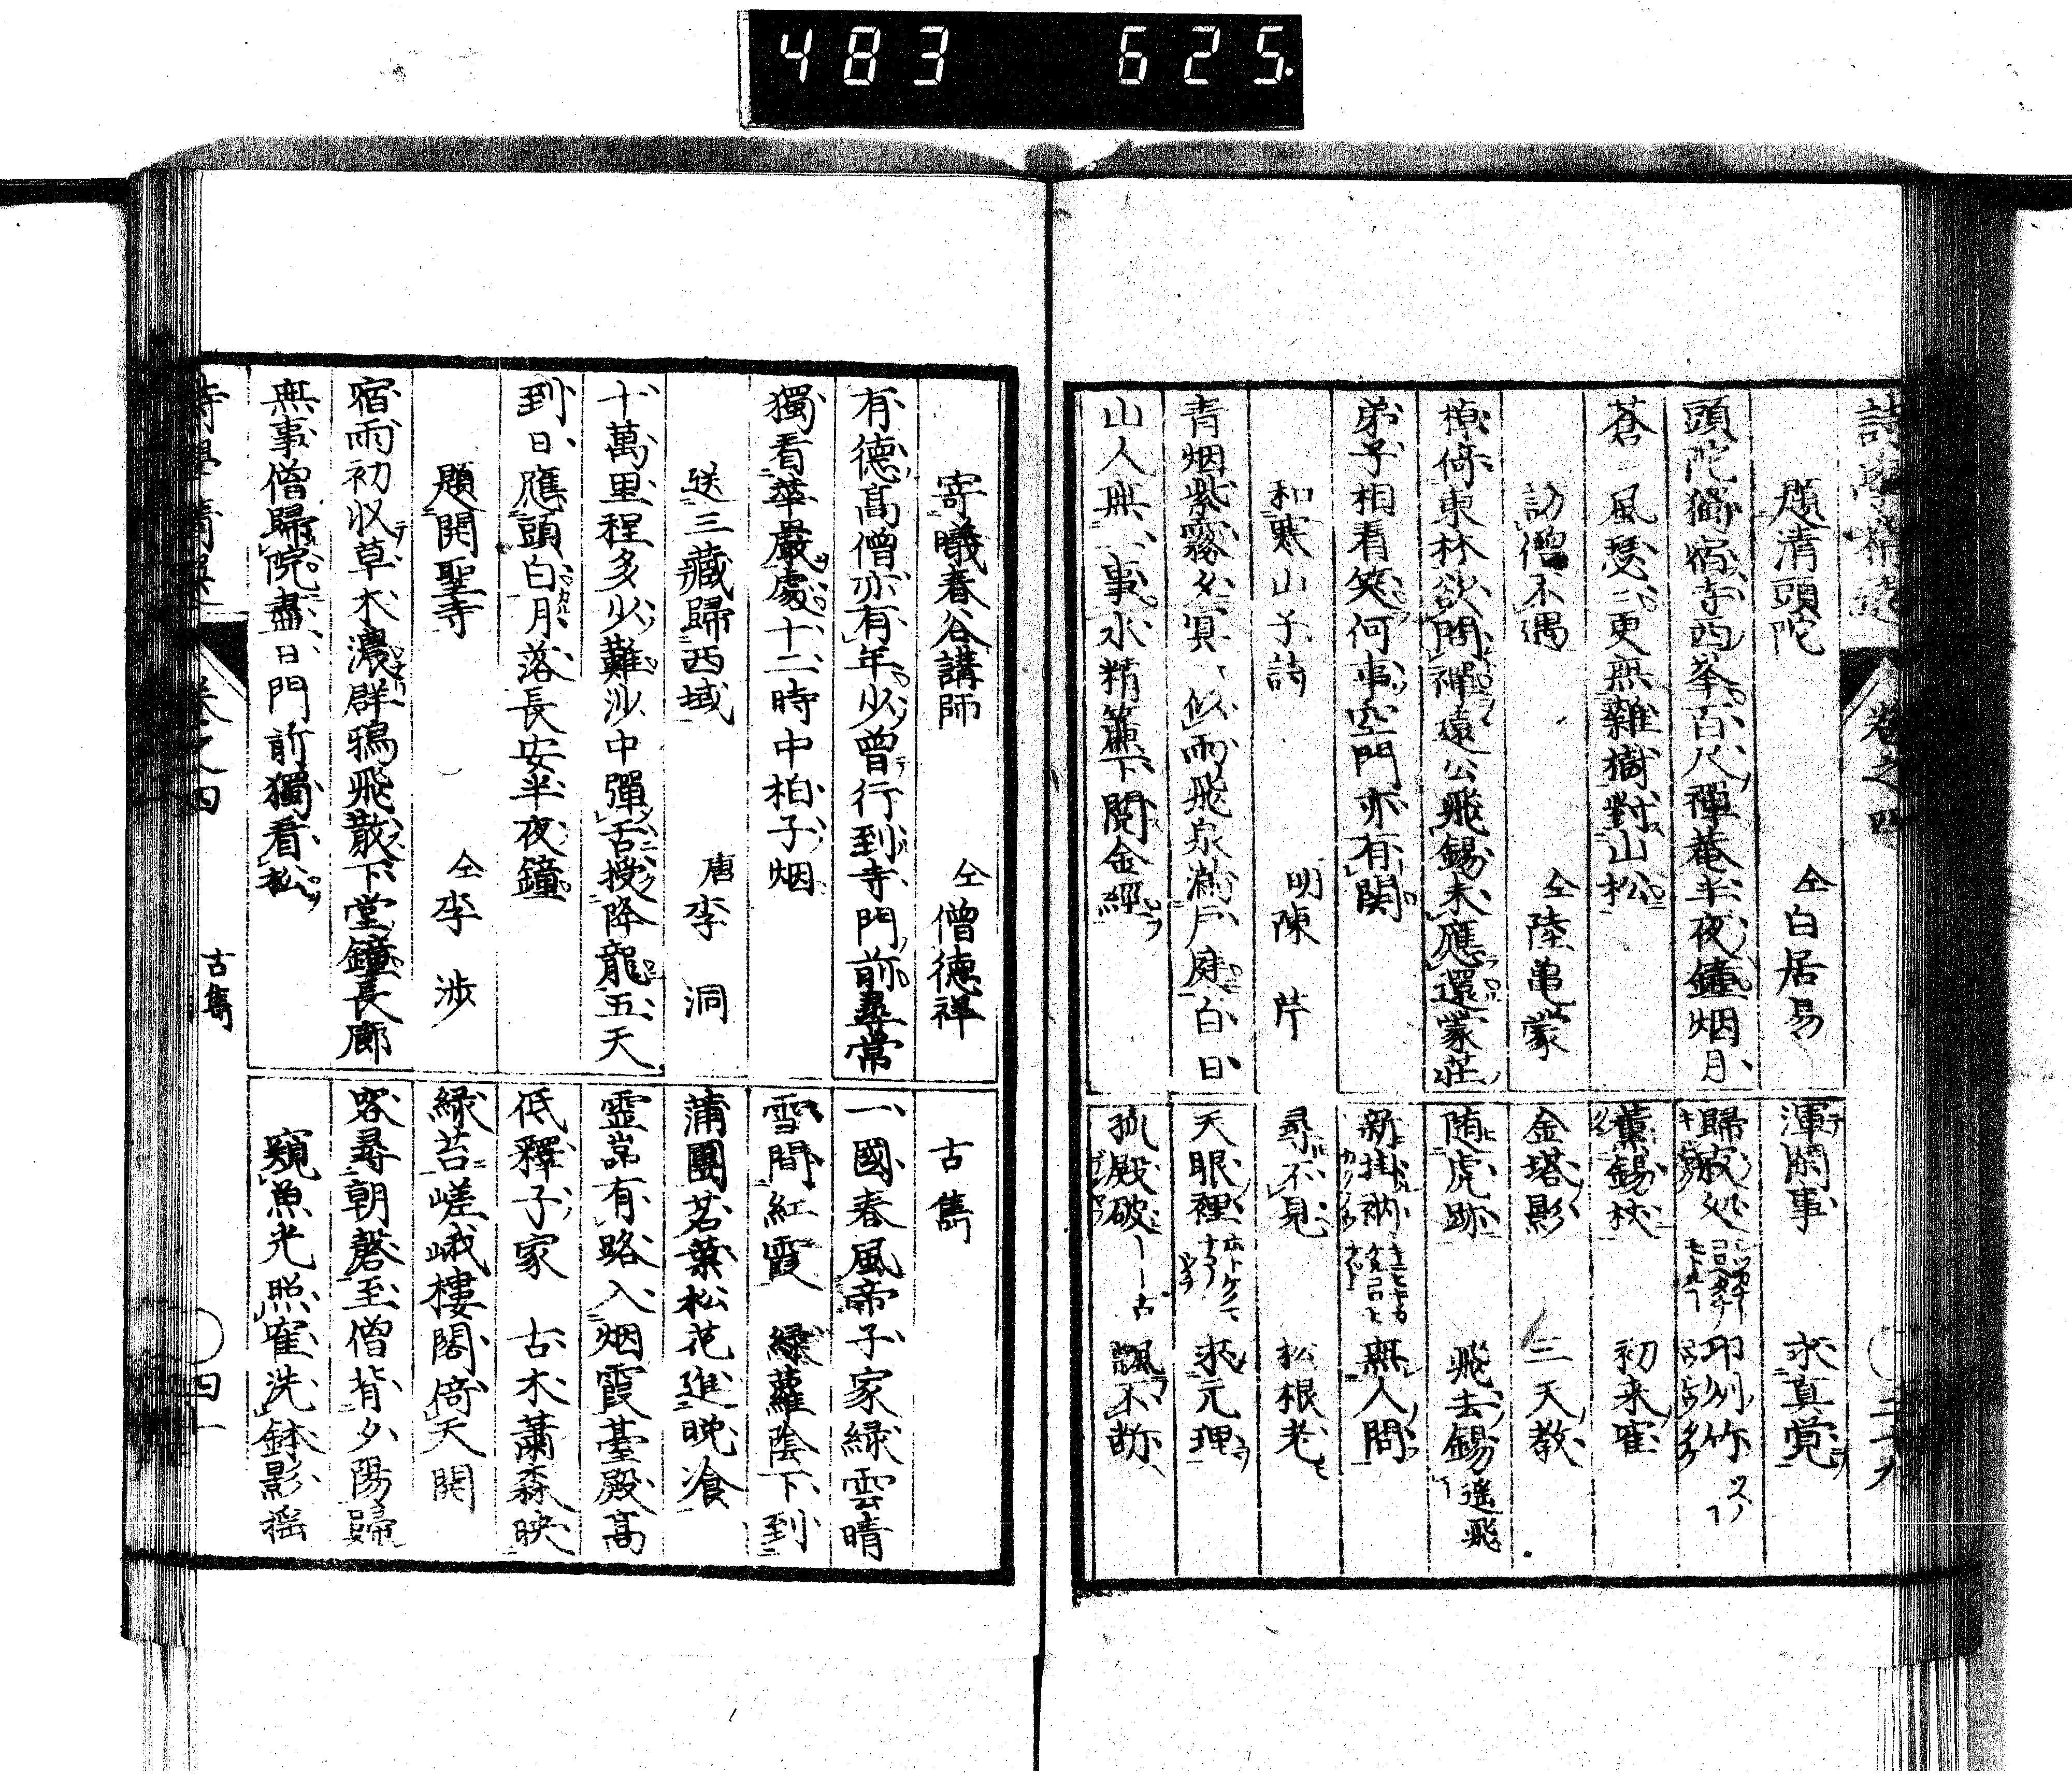 483 625.
卷之四
題清頭陀 仝白居易
頭陀獨宿寺西峯百尺禪菴半夜鐘烟月
蒼〻風瑟〻更無雜樹對山松
訪僧不遇 仝陸亀蒙
棹倚東林欲問禪遠公飛錫未應還蒙莊
弟子相看笑何事空門亦有関
和寒山子詩 明陳芹
青烟紫霧夕冥〻似雨飛泉滿戶庭白日
山人無一事水精簾下閱金經
渾閑事 求真覚
歸寂処 卭州竹
薫錫杖 初来寉
金塔影 三天教
随虎跡 飛去錫 遙飛
新掛衲 無人問
尋不見 松根老
天眼裡 求元理
孤殿破 諷不断
寄曦春谷講師 仝僧德祥
有德高僧亦有年少曾行到寺門前尋常
獨看華嚴處十二時中柏子烟
送三藏歸西域 唐李洞
十萬里程多少難沙中彈舌授降龍五天
到日應頭白月落長安半夜鐘
題開聖寺 仝李涉
宿雨初収草木濃群鴉飛散下堂鐘長廊
無事僧歸院盡日門前獨看松
古雋
一國春風帝子家綠雲晴
雪間紅霞 綠蘿陰下到
蒲團茗葉松花進晚飡
靈常有路入烟霞臺殿高
低釋子家 古木蕭森映
綠苔嵯峨樓閣倚天開
客尋朝磬至僧背夕陽歸
窺魚光照寉洗鉢影搖
卷之四
古雋